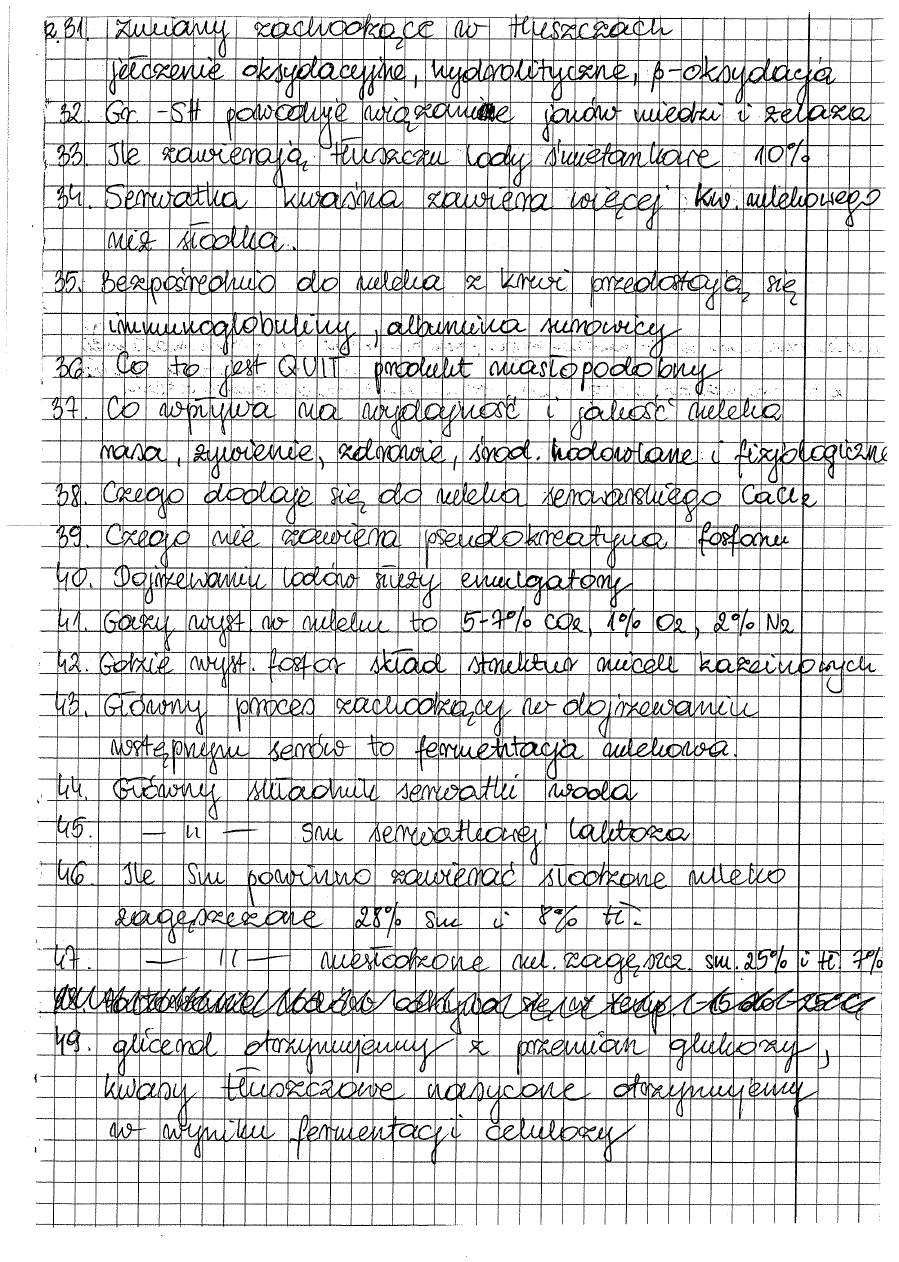 31. Zmiany zachodzące w tłuszczach
jełczenie oksydacyjne, hydrolityczne, β-oksydacja
32. Gr -SH powoduje wiązanie jonów miedzi i żelaza
33. Ile zawierają tłuszczu lody śmietankowe 10%
34. Serwatka kwaśna zawiera więcej kw. mlekowego
niż słodka.
35. Bezpośrednio do mleka z krwi przedostają się
immunoglobuliny, albumina surowicy
36. Co to jest QUIT produkt masłopodobny
37. Co wpływa na wydajność i jakość mleka
rasa, żywienie, zdrowie, środ. hodowlane i fizjologiczne
38. Czego dodaje się do mleka serowarskiego CaCl2
39. Czego nie zawiera pseudokreatyna fosforu
40. Dojrzewaniu lodów służy emulgatory
41. Gazy wyst. w mleku to 5-7% CO2, 1% O2, 2% N2
42. Gdzie wyst. fosfor skład struktur miceli kazeinowych
43. Główny proces zachodzący w dojrzewaniu
wstępnym serów to fermentacja mlekowa.
44. Główny składnik serwatki woda
45. — 11 — sm serwatkowej laktoza
46 Ile sm powinno zawierać słodzone mleko
zagęszczone 28% sm i 8% tł.
47. — 11 — niesłodzone ml. zagęszcz. sm. 25% i tł. 7%
49. glicerol otrzymujemy z przemian glukozy,
kwasy tłuszczowe nasycone otrzymujemy
w wyniku fermentacji celulozy